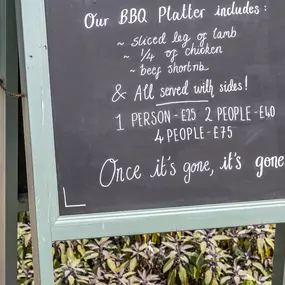 Our BBQ Platter includes :
~ sliced leg of lamb
~ 1/4 of chicken
~ beef short rib
& All served with sides!
1 PERSON - £25 2 PEOPLE - £40
4 PEOPLE - £75
Once it's gone, it's gone